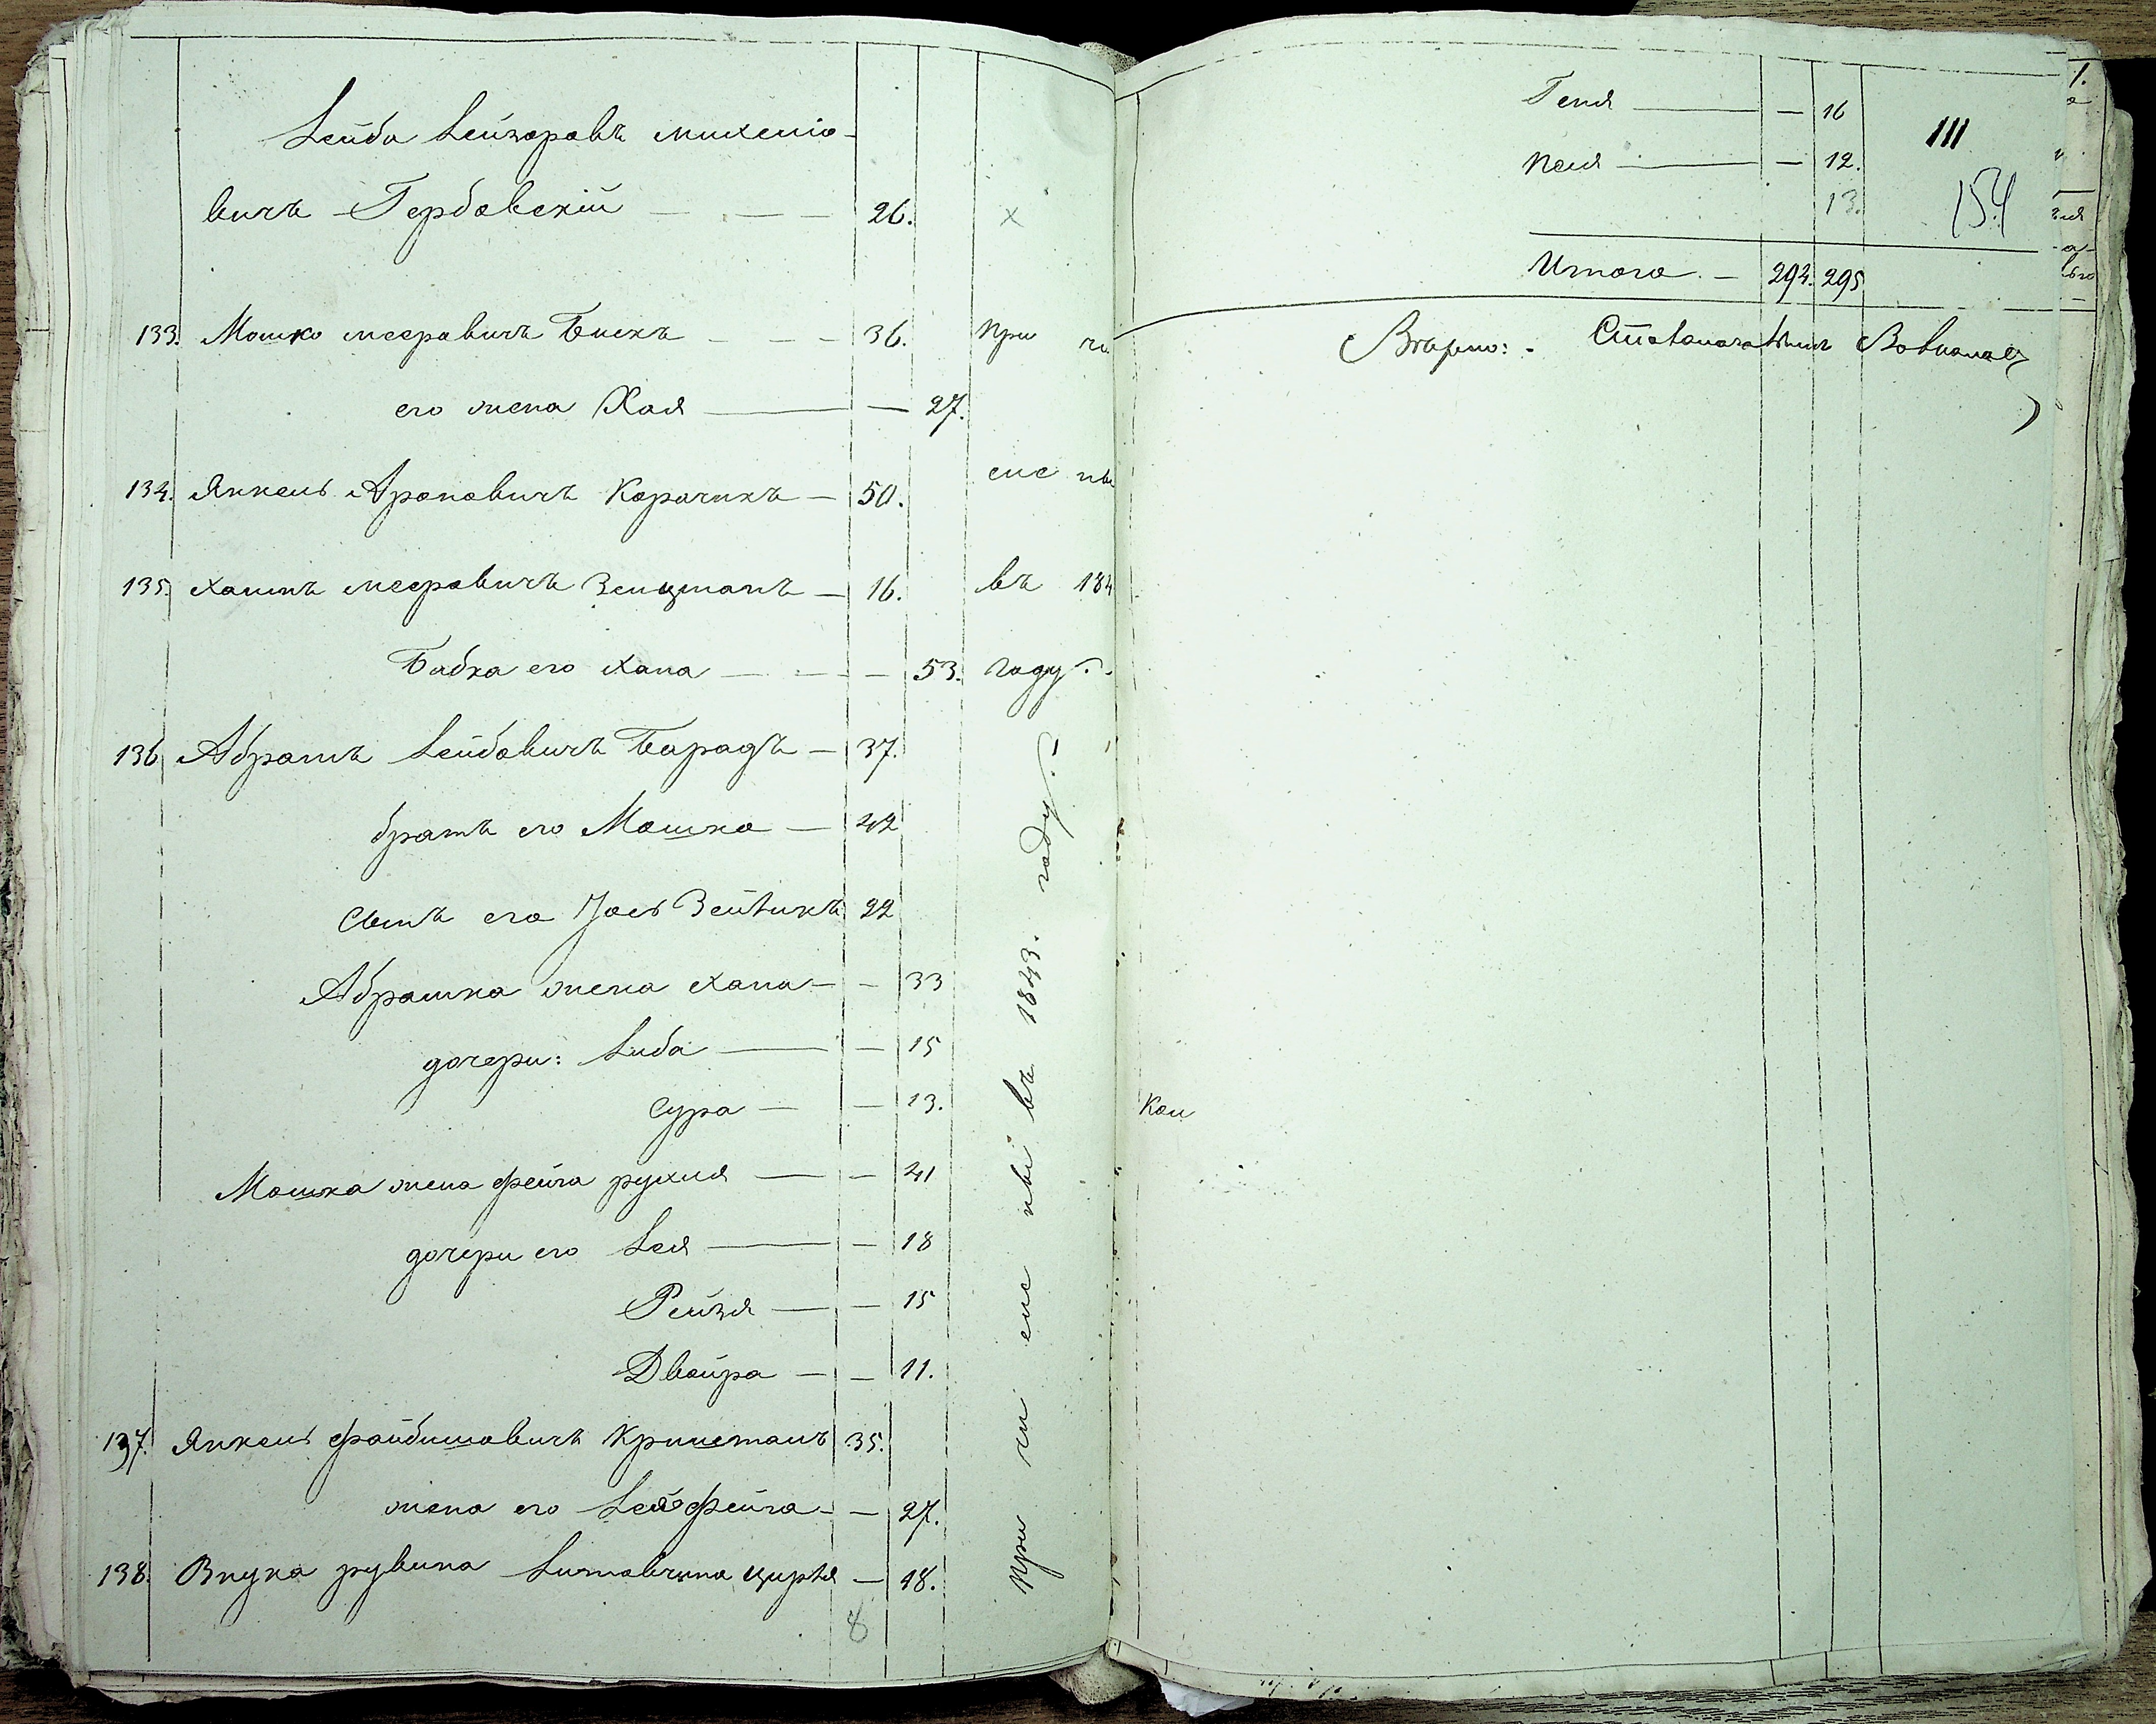 Лейба Лейзоровъ михеліо-
вичъ Гербовскій — — — 26. х
133. Мошко мееровичъ Бикъ — — — 36. при чи
его жена Хая — — 27.
134. Янкель Ароновичъ Корачикъ — 50. сис ны
135. Хаимъ мееровичъ Зенцманъ — 16. въ 184
Бабка его Хана — — — 53. году.
136 Абрамъ Лейбовичъ Барадъ — 37.
братъ его Мошка — 42
Сынъ его Іось Зейликъ 22
Абрашка жена Хана — — 33
дочери: Либа — — 15
Сура — — 13.
Мошка жена Фейга рухля — — 41
дочери его Лея — — 18
Рейзя — — 15
Двойра — — 11.
137. Янкель Файбишовичъ 35.
жена его Лея Фейга — — 27.
138. Внука рувина — 18.
8
при чи сис ны въ 1843. году.
Геня — — 16
Песя — — 12.
13.
111
154
Итого — 294. 295
Вѣрно:
Кон